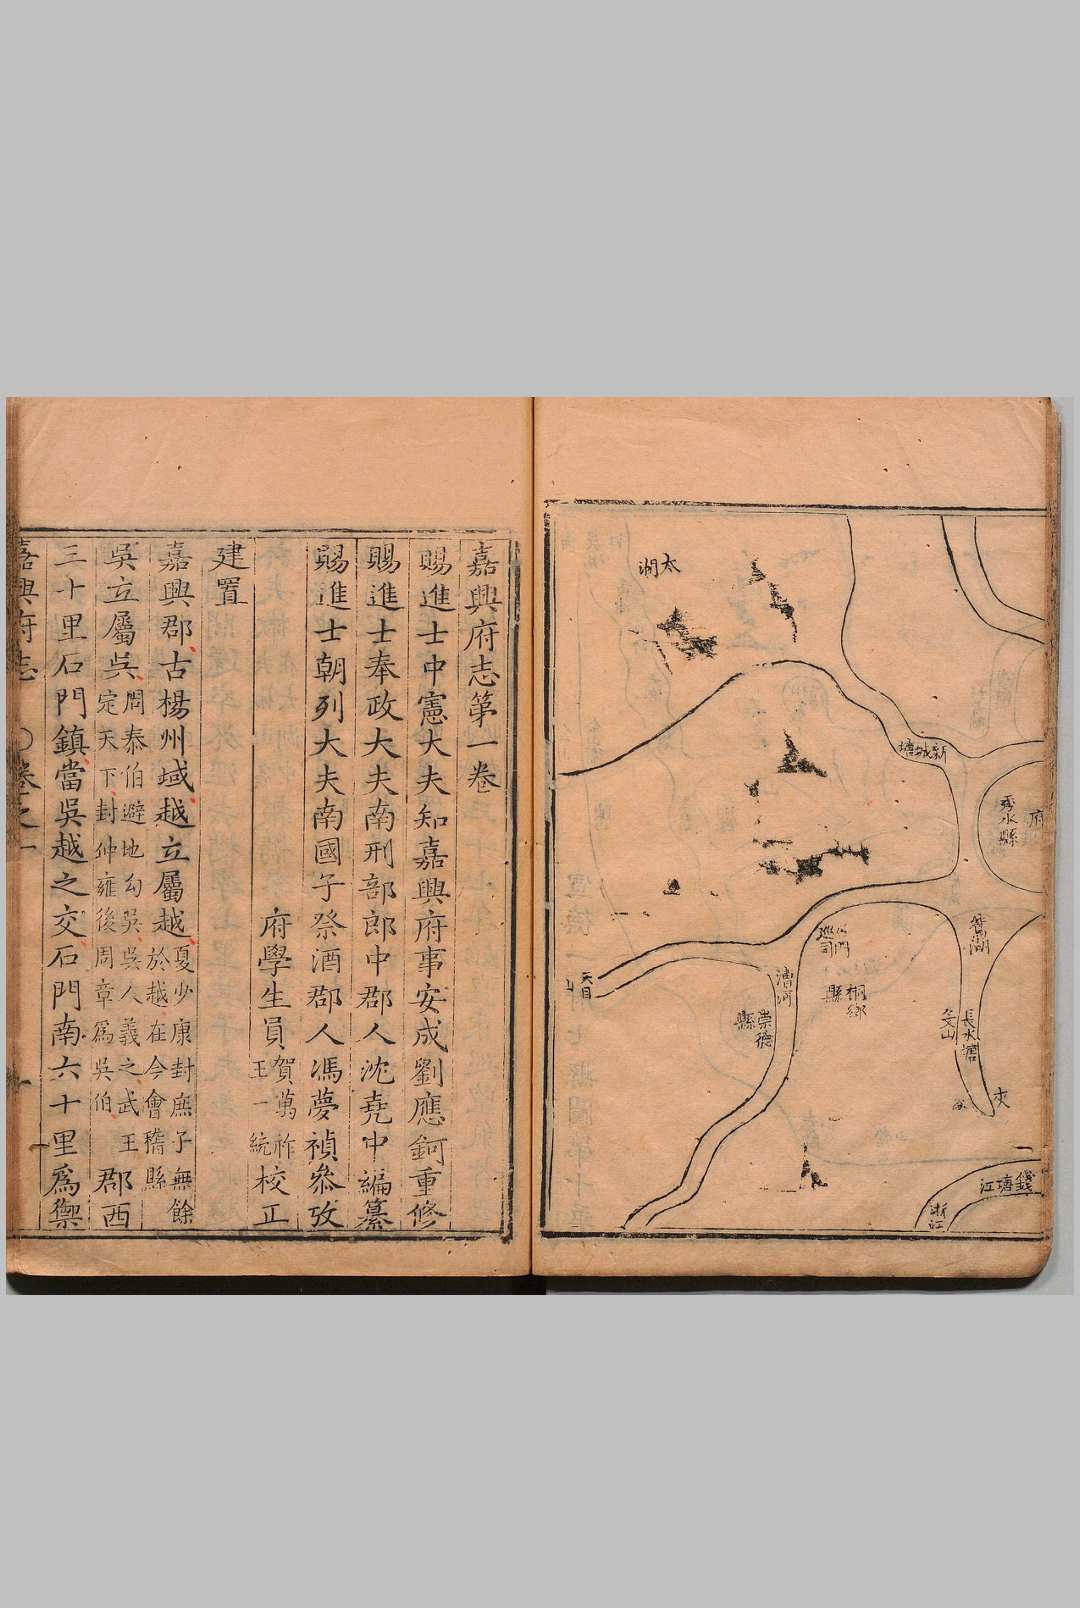 太湖
新城塘
府
秀水縣
鴛湖
巡司
漕河
桐鄉縣
崇德縣
天目山
長水塘
殳山
夾
錢塘江
浙江
嘉興府志第一卷
賜進士中憲大夫知嘉興府事安成劉應鈳重修
賜進士奉政大夫南刑部郎中郡人沈堯中編纂
賜進士朝列大夫南國子祭酒郡人馮夢禎叅攷
府學生員賀萬祚王一統校正
建置
嘉興郡古楊州域越立屬越夏少康封庶子無餘於越在今會稽縣
吳立屬吳周泰伯避地勾吳吳人義之武王定天下封仲雍後周章爲吳伯郡西
三十里石門鎮當吳越之交石門南六十里爲禦
嘉興府志 卷之一 一